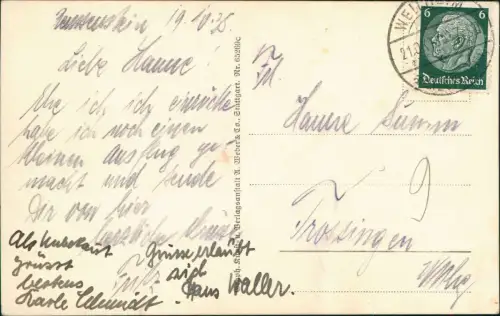 19.10.35
Liebe Hanne!
Ehe ich einrücke
habe ich noch einen
kleinen Ausflug ge-
macht und sende
Dir von hier
herzliche Grüsse
Fritz
Als Unbekannt
grüsst
bestens
Karle Schmidt.
Grüsse erlaubt
sich
Hans Waller.
Verlagsanstalt A. Weber & Co., Stuttgart. Nr.
WEINHEIM
6 6
Deutsches Reich
Frl.
Hanne
9
Trossingen
Wttbg